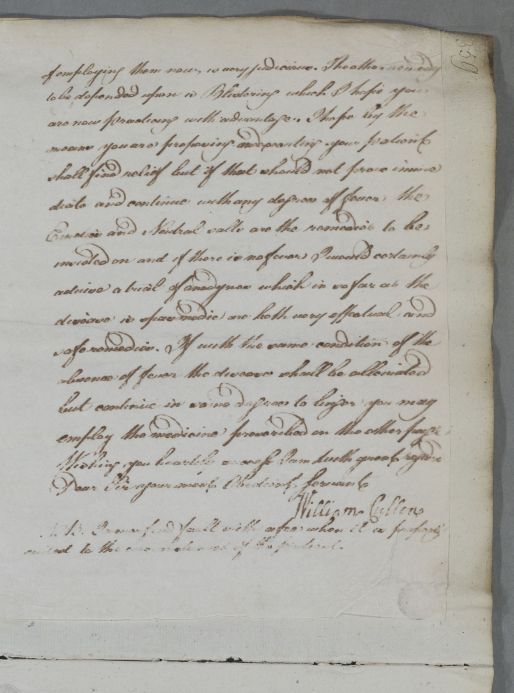 of employing them now, is very judicious. The other remedy
to be depended upon is Blistering which I hope you
are now practising with advantage. I hope by the
means you are proposing and practising your patient
shall find relief but if that should not prove imme
diate and continue with any degree of fever the
Emetics and Neutral salts are the remedies to be
insisted on and if there is no fever I would certainly
advise a trial of anodynes which in so far as the
disease is spasmodic are both very effectual and
safe remedies. If with the same condition of the
absence of fever the disease shall be alleviated
but continue in some degree to linger you may
employ the medicine prescribed on the other page.
Wishing you heartily success I am with great regard
Dear Sir your most Obedient servant
William Cullen
N.B. I never find fault with when it is perfectly
suited to the of the patient.